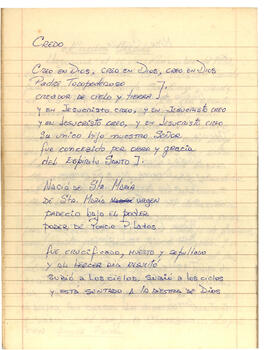 CREDO
CREO EN DIOS, CREO EN DIOS, CREO EN DIOS
PADRE TODOPODEROSO
CREADOR DE CIELO Y TIERRA].
Y EN JESUCRISTO CREO, Y EN JESUCRISTO CREO
Y EN JESUCRISTO CREO, Y EN JESUCRISTO CREO
SU UNICO HIJO NUESTRO SEÑOR
FUE CONCEBIDO POR OBRA Y GRACIA
DEL ESPIRITU SANTO].
NACIO DE STA. MARIA
DE STA. MARIA VIRGEN
PADECIO BAJO EL PODER
PODER DE PONCIO PILATOS
FUE CRUCIFICADO, MUERTO Y SEPULTADO
Y AL TERCER DIA RESUCITO
SUBIO A LOS CIELOS, SUBIO A LOS CIELOS
Y ESTA SENTADO A LA DIESTRA DE DIOS